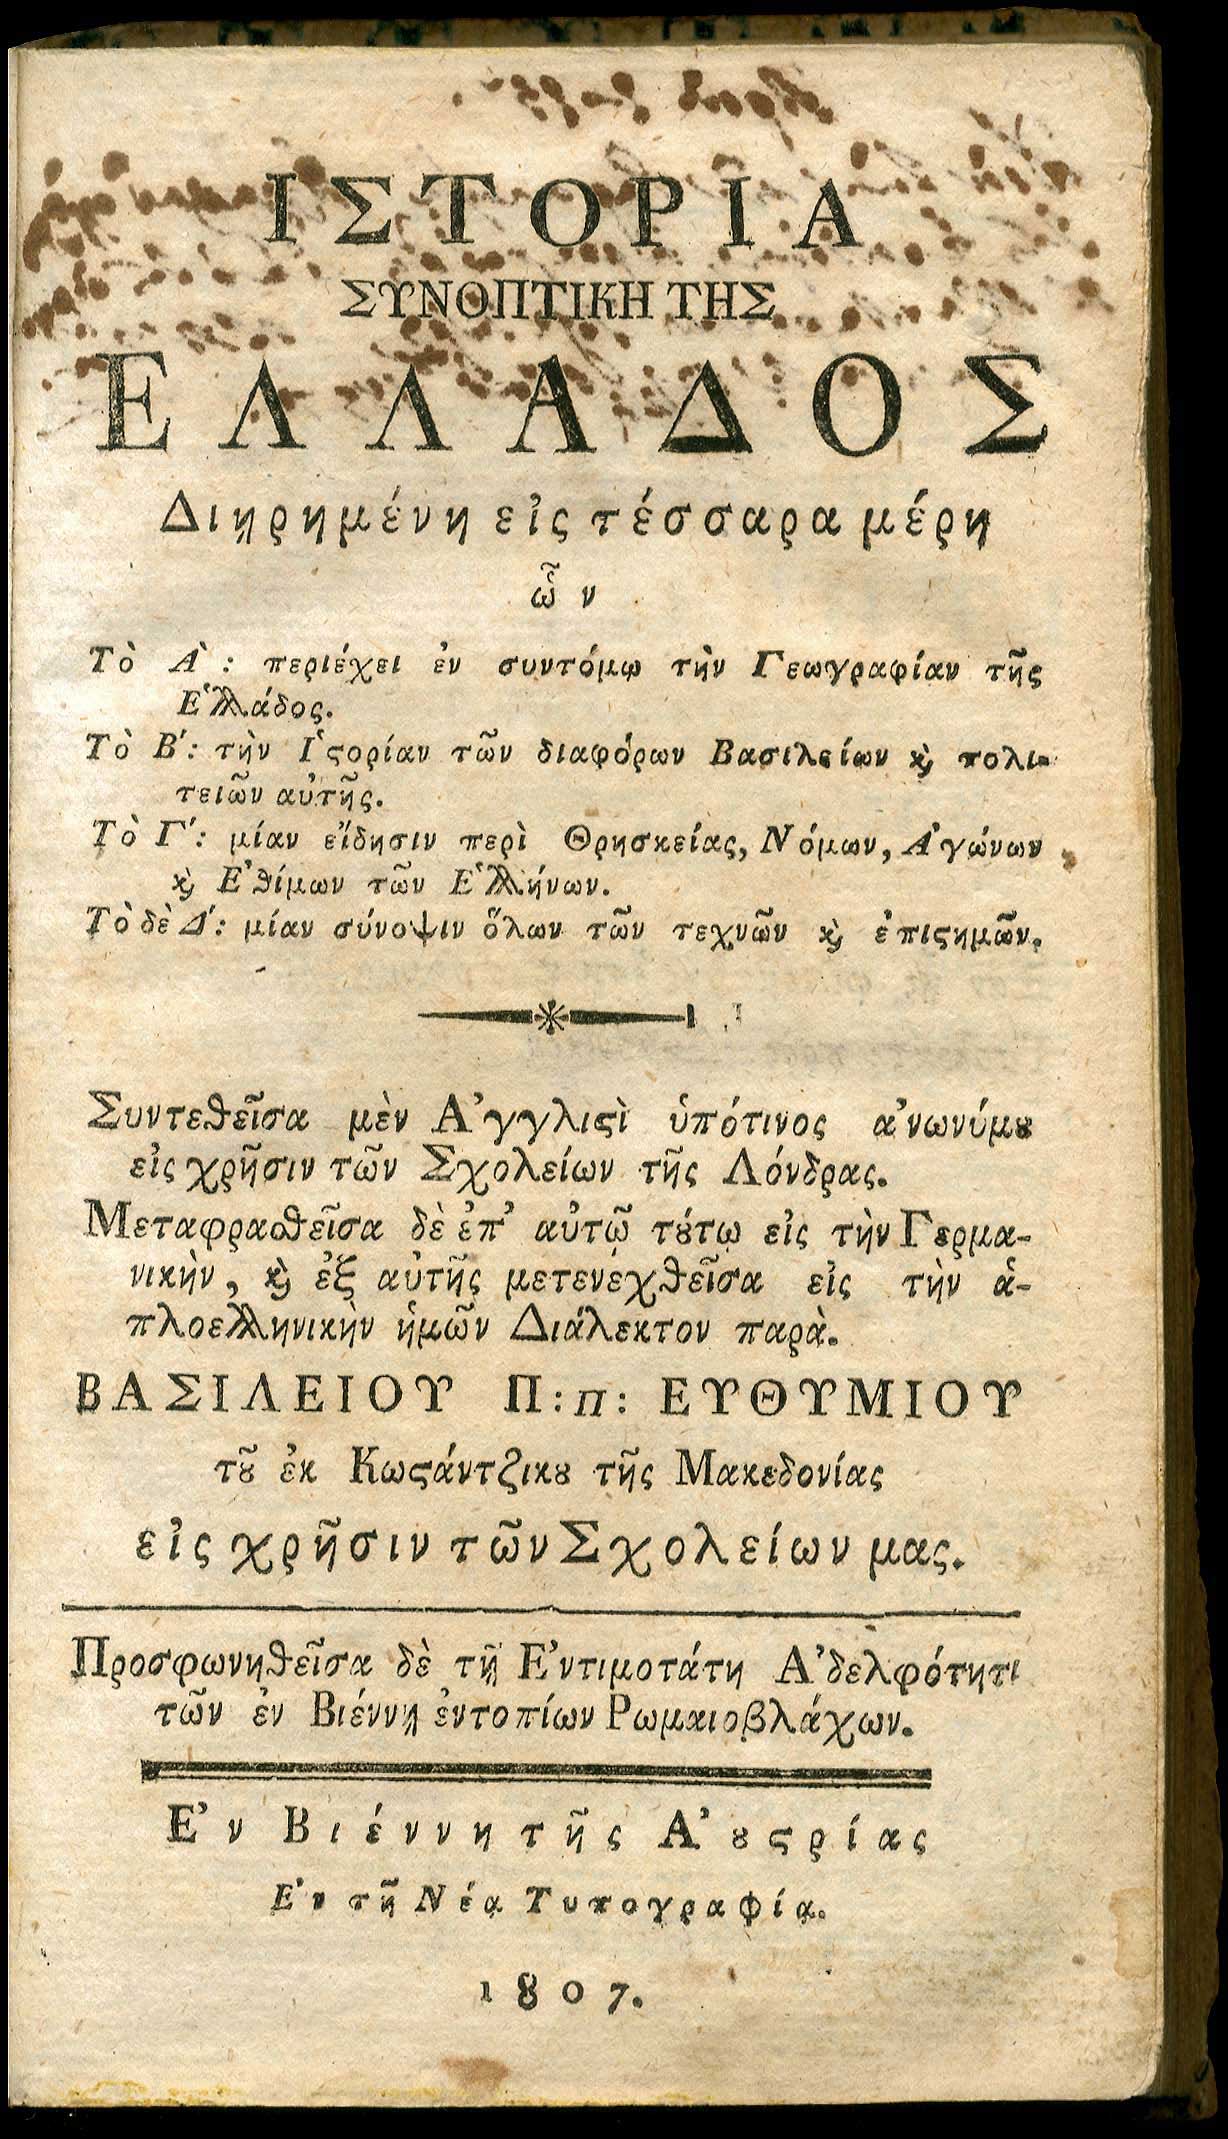 ΙΣΤΟΡΙΑ
ΣΥΝΟΠΤΙΚΗ ΤΗΣ
ΕΛΛΑΔΟΣ
Διῃρημένη εἰς τέσσαρα μέρη
ὧν
Τὸ Α': περιέχει ἐν συντόμῳ τὴν Γεωγραφίαν τῆς
Ἑλλάδος.
Τὸ Β': τὴν Ἱϛορίαν τῶν διαφόρων Βασιλείων ϗ πολι-
τειῶν αὐτῆς.
Τὸ Γ': μίαν εἴδησιν περὶ Θρησκείας, Νόμων, Ἀγώνων
ϗ Ἐθίμων τῶν Ἑλλήνων.
Τὸ δὲ Δ': μίαν σύνοψιν ὅλων τῶν τεχνῶν ϗ ἐπιϛημῶν.
Συντεθεῖσα μὲν Ἀγγλιϛὶ ὑπότινος ἀνωνύμȣ
εἰς χρῆσιν τῶν Σχολείων τῆς Λόνδρας.
Μεταφρασθεῖσα δὲ ἐπ' αὐτῷ τȣ́τῳ εἰς τὴν Γερμα-
νικὴν, ϗ ἐξ αὐτῆς μετενεχθεῖσα εἰς τὴν ἁ-
πλοελληνικὴν ἡμῶν Διάλεκτον παρὰ.
ΒΑΣΙΛΕΙΟΥ Π:π: ΕΥΘΥΜΙΟΥ
τȣ͂ ἐκ Κωϛάντζικȣ τῆς Μακεδονίας
εἰς χρῆσιν τῶν Σχολείων μας.
Προσφωνηθεῖσα δὲ τῇ Ἐντιμοτάτῃ Ἀδελφότητι
τῶν ἐν Βιέννῃ ἐντοπίων Ῥωμαιοβλάχων.
Ἐν Βιέννῃ τῆς Ἀȣϛρίας
Ἐν τῇ Νέᾳ Τυπογραφίᾳ.
1807.